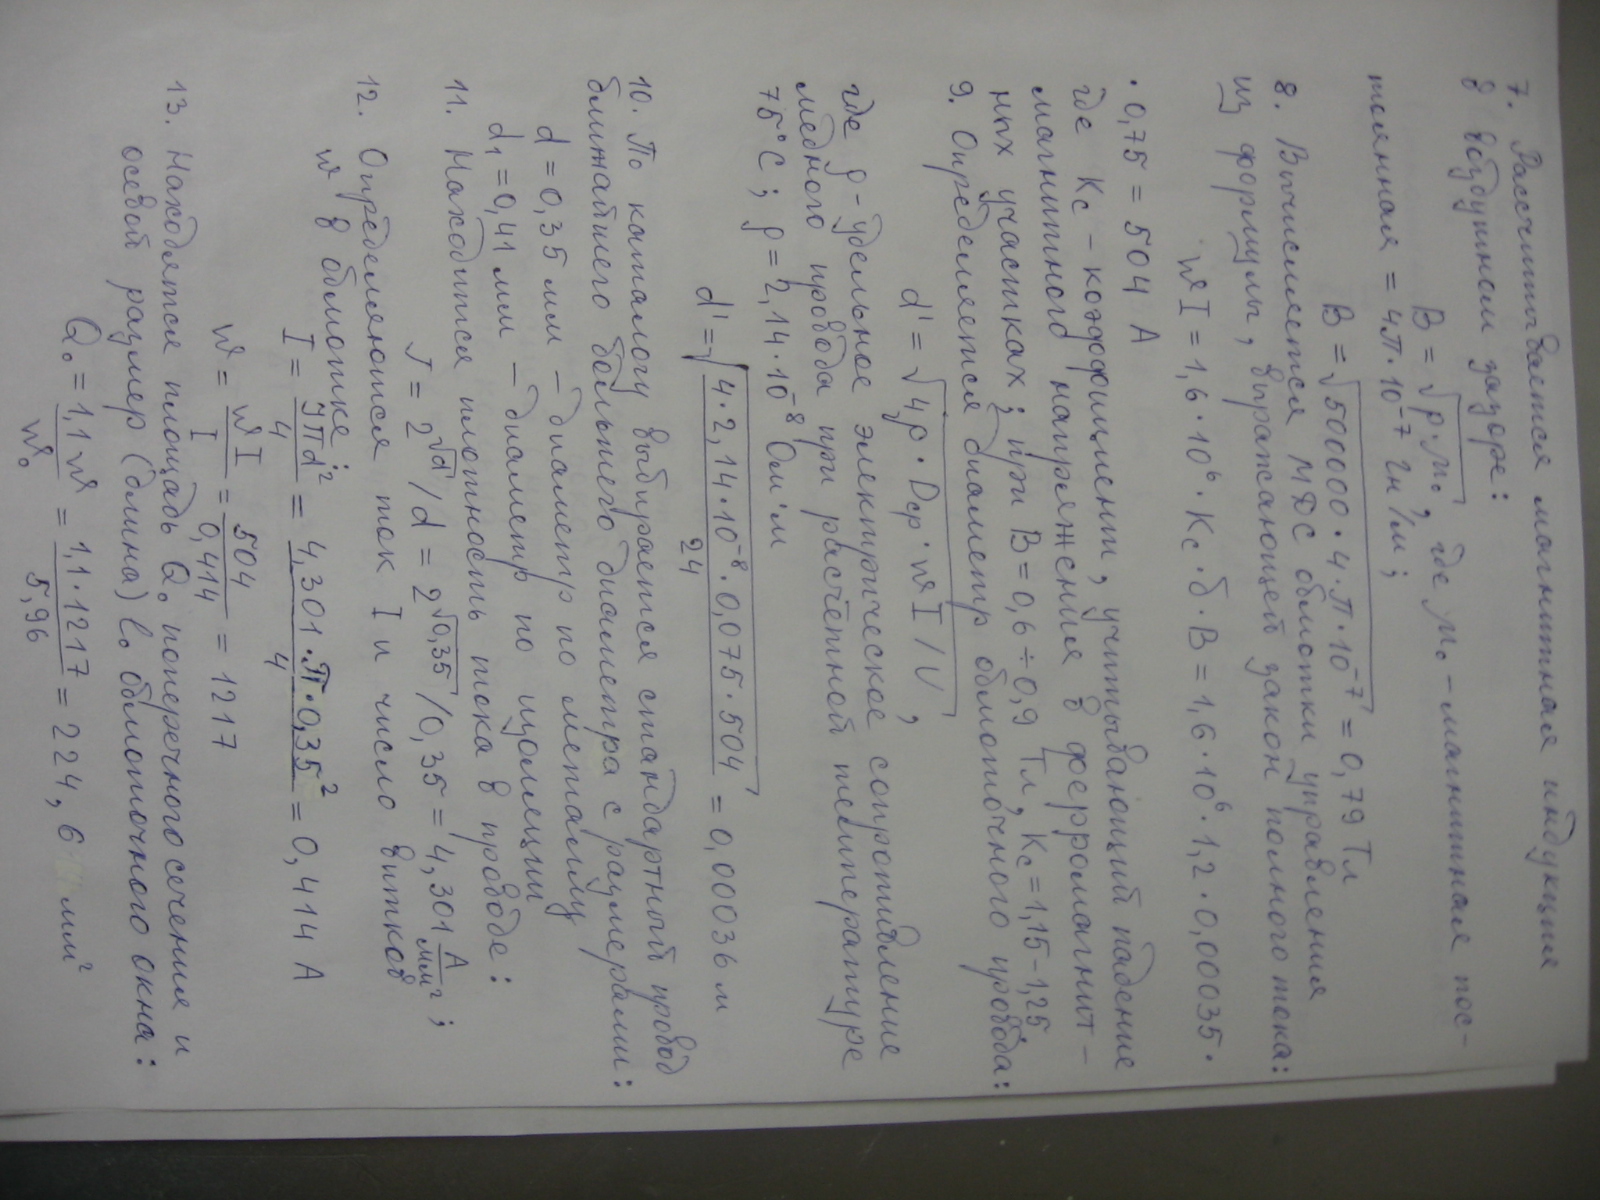 7. Рассчитывается магнитная индукция
в воздушном зазоре:
B = √p·μ₀, где μ₀ – магнитная пос-
тоянная = 4π·10⁻⁷ Гн/м;
B = √500000·4·π·10⁻⁷ = 0,79 Тл
8. Вычисляется МДС обмотки управления
из формулы, выражающей закон полного тока:
wI = 1,6·10⁶·Kc·б·B = 1,6·10⁶·1,2·0,00035·
·0,75 = 504 А
где Kc – коэффициент, учитывающий падение
магнитного напряжения в ферромагнит-
ных участках; при B = 0,6÷0,9 Тл, Kc = 1,15–1,25
9. Определяется диаметр обмоточного провода:
d' = √4ρ·Dср·wI/U,
где ρ – удельное электрическое сопротивление
медного провода при расчётной температуре
75°С; ρ = 2,14·10⁻⁸ Ом·м
d' = √4·2,14·10⁻⁸·0,075·504/24 = 0,00036 м
10. По каталогу выбирается стандартный провод
ближайшего большего диаметра с размерами:
d = 0,35 мм – диаметр по металлу
d₁ = 0,41 мм – диаметр по изоляции
11. Находится плотность тока в проводе:
J = 2√d/d = 2√0,35/0,35 = 4,301 А/мм²;
12. Определяются ток I и число витков
w в обмотке:
I = Jπd²/4 = 4,301·π·0,35²/4 = 0,414 А
w = wI/I = 504/0,414 = 1217
13. Находятся площадь Q₀ поперечного сечения и
осевой размер (длина) l₀ обмоточного окна:
Q₀ = 1,1w/w₀ = 1,1·1217/5,96 = 224,6 мм²